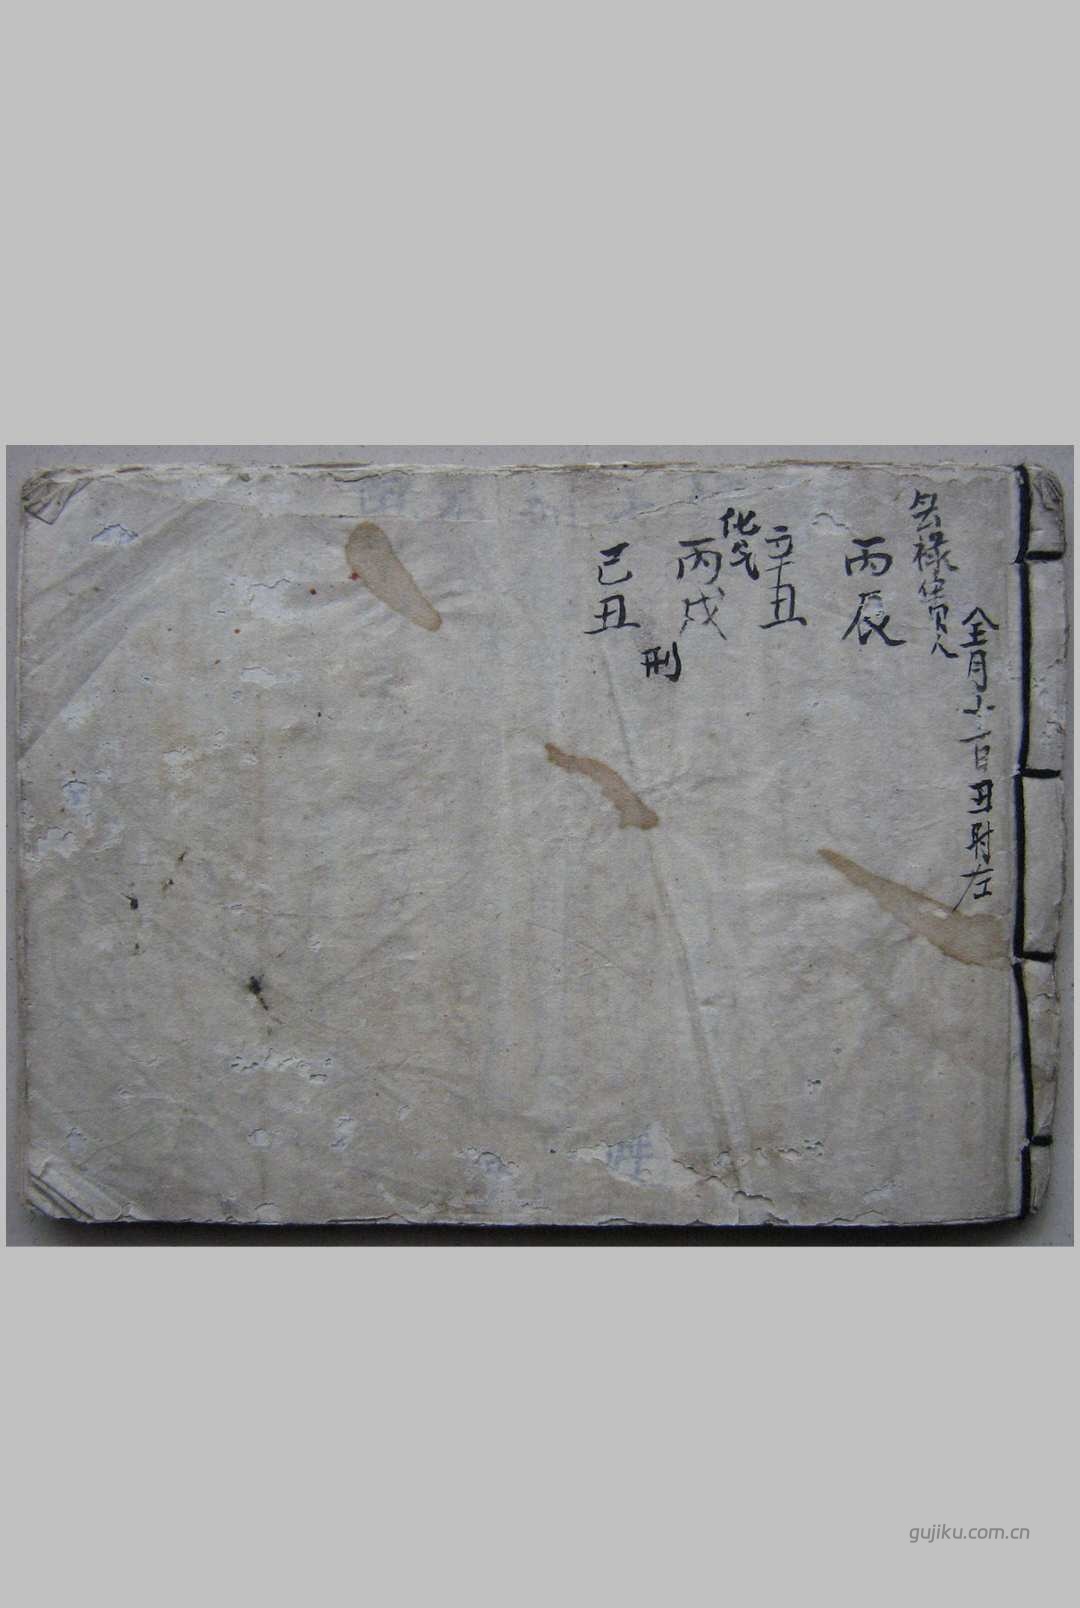 全月小 百丑時左
禄貴人
丙辰
辛丑
化
丙戌
刑
己丑
gujiku.com.cn